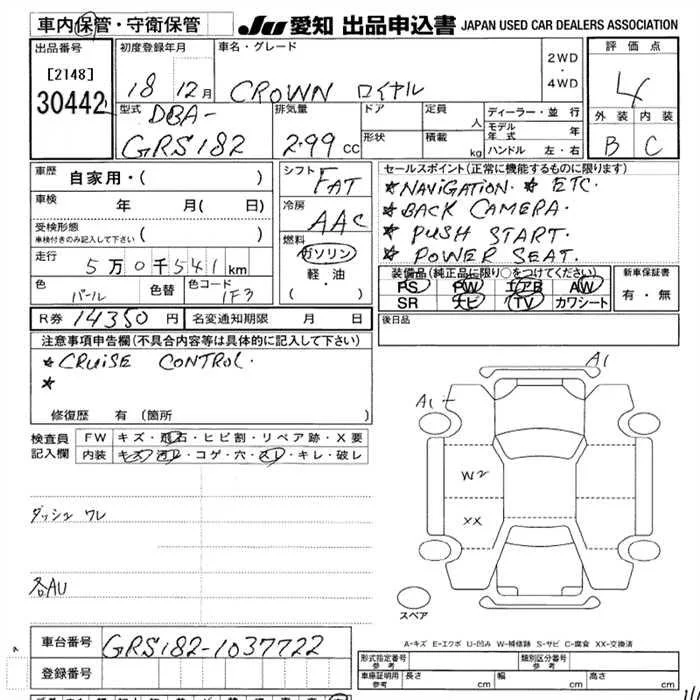 車内保管・守衛保管
JU 愛知 出品申込書 JAPAN USED CAR DEALERS ASSOCIATION
出品番号
[2148]
30442
初度登録年月
18 12月
車名・グレード
CROWN ロイヤル
2WD
・
4WD
評価点
4
外装 内装
B C
型式
DBA-
GRS182
排気量
2.99 cc
ドア
形状
定員
人
積載
kg
ディーラー・並行
モデル年式 年
ハンドル 左・右
車歴
自家用・( )
車検 年 月( 日)
受検形態
車検付きのみ記入して下さい ( )
走行
5万0千541km
色
パール
色替
色コード
1F3
シフト
FAT
冷房
AAC
燃料
ガソリン
軽・油
( ・ )
セールスポイント(正常に機能するものに限ります)
★NAVIGATION. ★ ETC.
★BACK CAMERA.
★ PUSH START.
★ POWER SEAT.
装備品(純正品に限り○をつけてください)
PS PW エアB AW
SR ナビ TV カワシート
新車保証書
有・無
R券 14350 円 名変通知期限 月 日
後日品
注意事項申告欄(不具合内容等は具体的に記入して下さい)
★CRUISE CONTROL.
★
修復歴 有(箇所 )
検査員
記入欄
FW キズ・飛石・ヒビ割・リペア跡・X要
内装 キズ・汚レ・コゲ・穴・スレ・キレ・破レ
ダッシュ ワレ
各AU
A1
A1
W2
XX
スペア
A-キズ E-エクボ U-凹み W-補修跡 S-サビ C-腐食 XX-交換済
車台番号 GRS182-1037722
登録番号
形式指定番号
参考
類別区分番号
参考
車庫証明用
参考
長さ cm 幅 cm 高さ cm